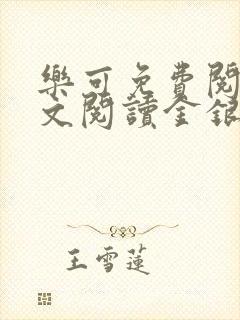 樂可免費閱
文閱讀金銀
王雪蓮